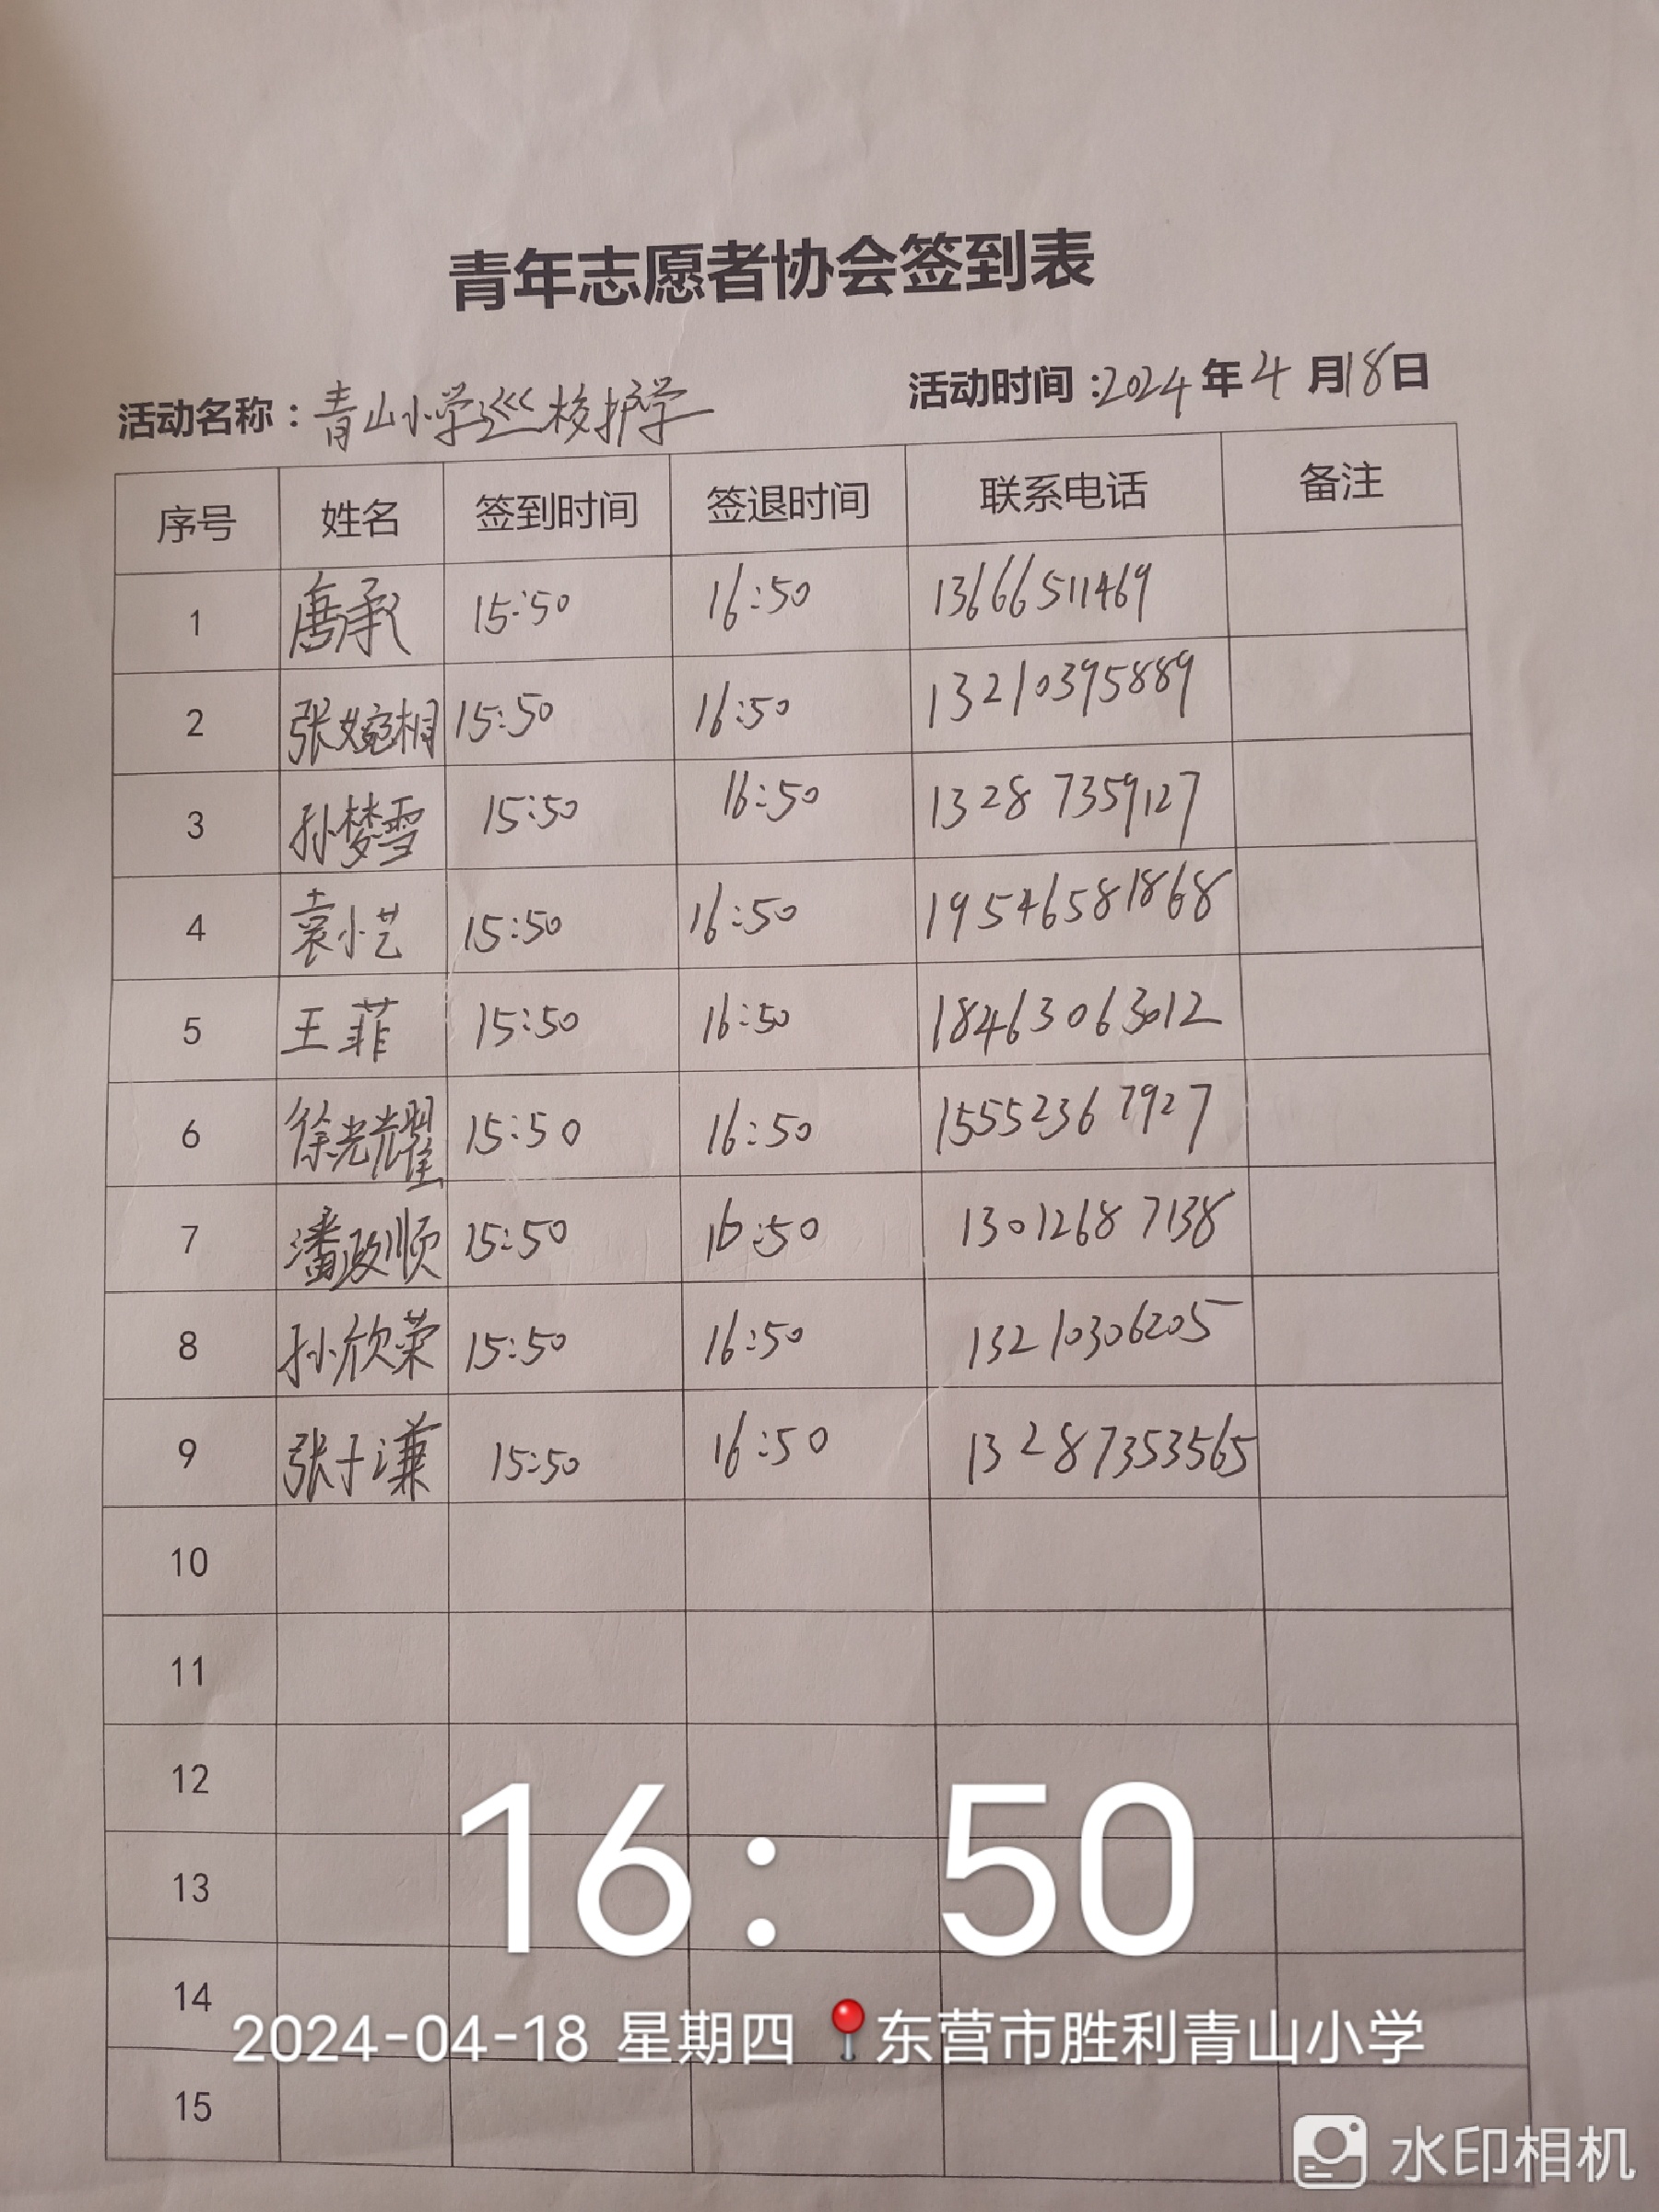 青年志愿者协会签到表
活动名称：青山小学巡校护学 活动时间：2024年4月18日
序号 姓名 签到时间 签退时间 联系电话 备注
1 唐承 15:50 16:50 13666511469
2 张婉桐 15:50 16:50 13210395889
3 孙梦雪 15:50 16:50 13287359127
4 袁小艺 15:50 16:50 19546581868
5 王菲 15:50 16:50 18463063012
6 徐光耀 15:50 16:50 15552367927
7 潘政顺 15:50 16:50 13012687138
8 孙欣荣 15:50 16:50 13210306205
9 张于谦 15:50 16:50 13287353565
10
11
12
16:50
13
14
2024-04-18 星期四 东营市胜利青山小学
15
水印相机